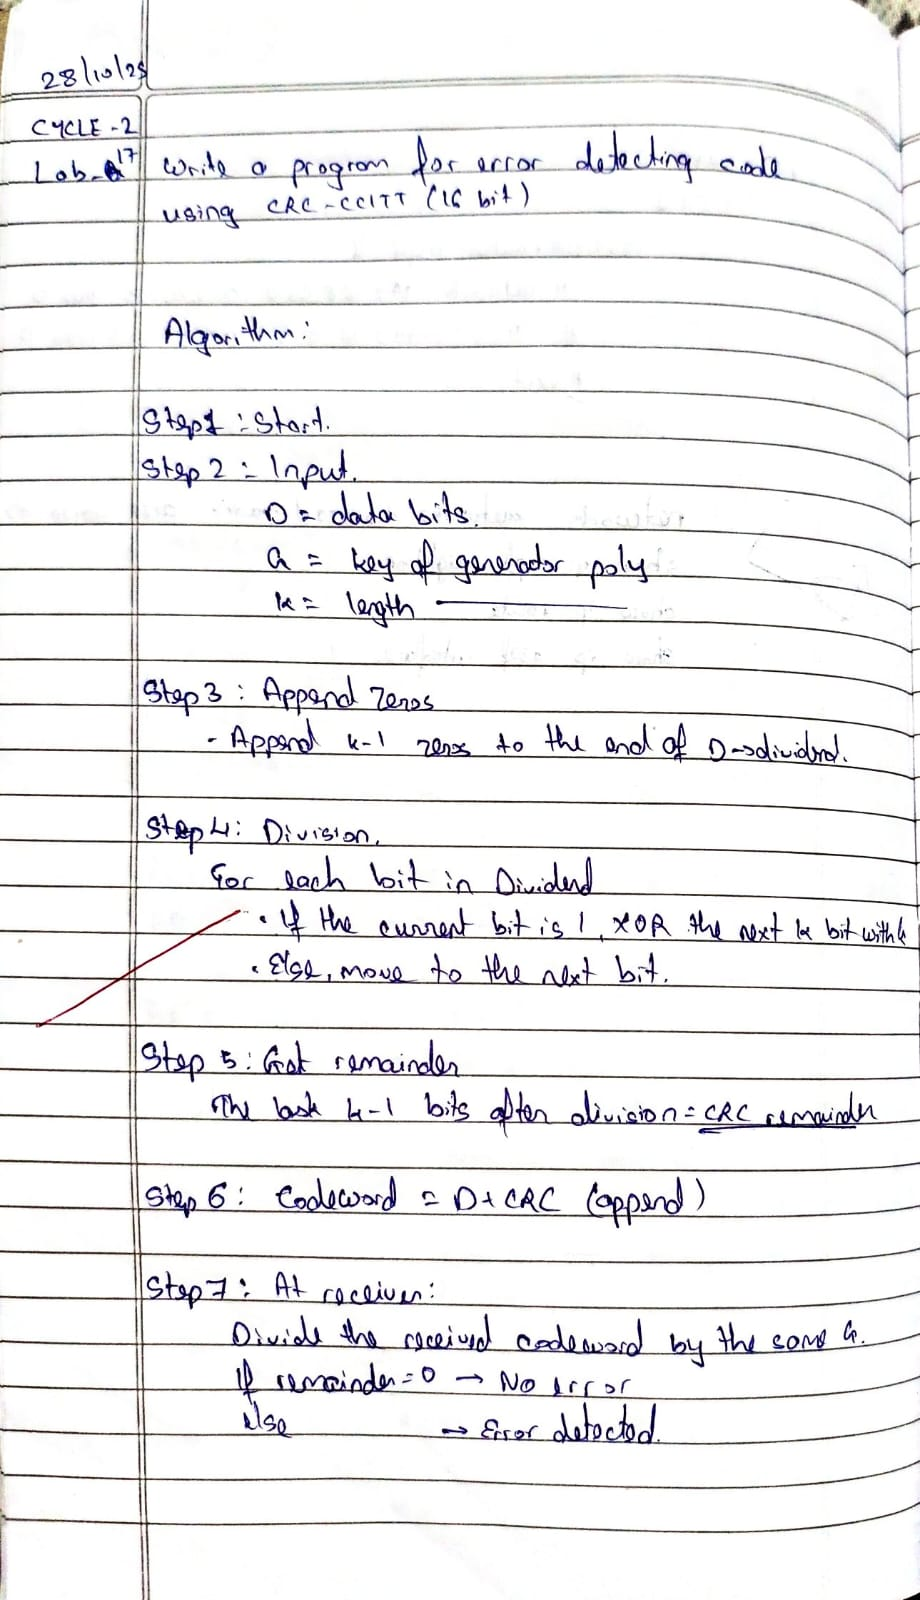 28/10/25
CYCLE-2
Lab-17 Write a program for error detecting code
using CRC-CCITT (16 bit)
Algorithm:
Step1 : Start.
Step 2 : Input.
D = data bits.
G = key of generator poly
k = length
Step 3 : Append Zeros
- Append k-1 zeros to the end of D→dividend.
Step 4: Division.
For each bit in Dividend
• If the current bit is 1, XOR the next k bit with G
• Else, move to the next bit.
Step 5 : Get remainder
The last k-1 bits after division = CRC remainder
Step 6 : Codeword = D + CRC (append)
Step 7 : At receiver:
Divide the received codeword by the same G.
If remainder = 0 → No error
Else → Error detected.